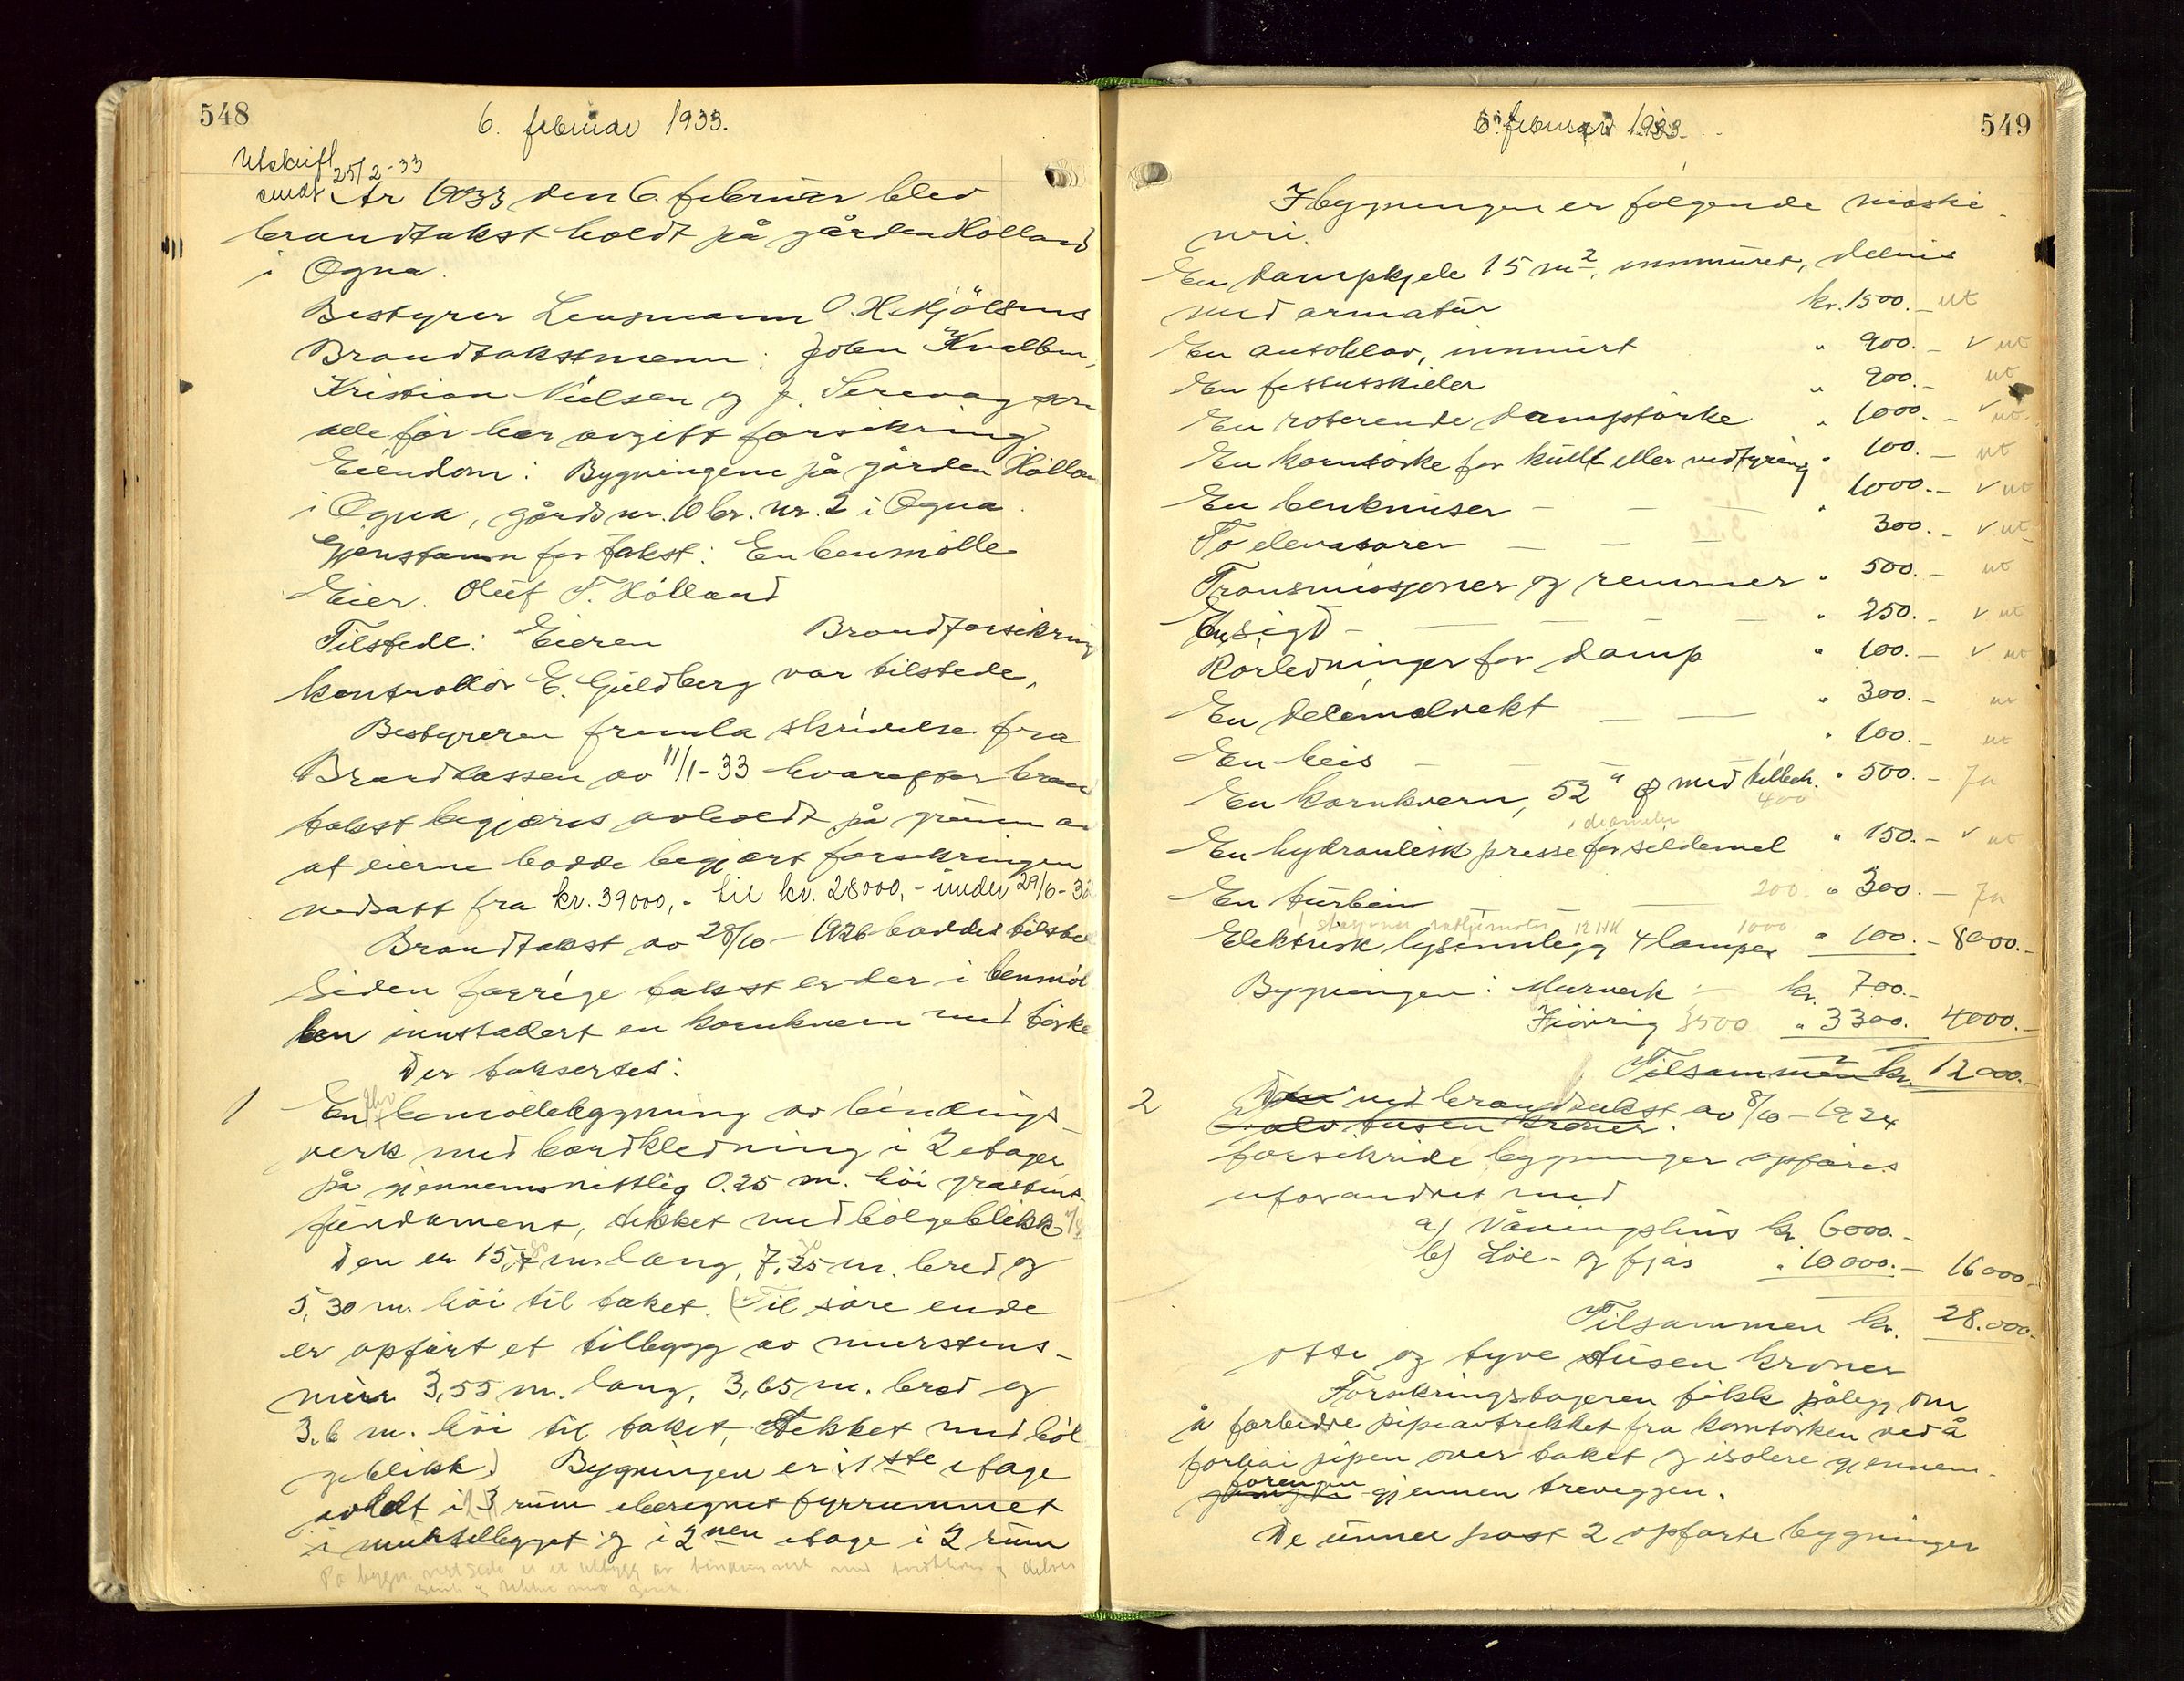 548
6. februar 1933.
Utskrift
sendt 25/2-33
År 1933 den 6. februar blev
brandtakst holdt på gården Hölland
i Ogna.
Bestyrer Lensmann O. H. Mjölsnes
Brandtakstmenn: John Kvalben,
Kristian Nielsen og J. Sirevåg som
alle før har avgitt forsikring
Eiendom: Bygningene på gården Hölland
i Ogna, gårds nr. 10 br. nr. 2 i Ogna.
Gjenstann for takst: En benmölle
Eier. Oluf T. Hölland
Tilstede: Eieren Brandforsikring
kontrollör E. Guldberg var tilstede.
Bestyreren fremla skrivelse fra
Brandkassen av 11/1-33 hvarefter brand
takst begjæres avholdt på grunn av
at eierne hadde begjært forsikringen
nedsatt fra kr. 39000,- til kr. 28000,- under 29/6-32
Brandtakst av 28/10-1926 haddes tilstede
Siden forrige takst er der i benmöl
len innstallert en kornkvern med törke
Der taksertes:
1 En benmöllebygning av bindings
verk med bordkledning i 2 etager
på gjennemsnittlig 0.25 m. höi gråstens
fundament, tekket med bölgeblikk
Den er 15,7 m. lang, 7,25 m. bred og
5,30 m. höi til taket. (Til söre ende
er opfört et tillegg av murstens-
mur 3,55 m. lang, 3,65 m. bred og
3.6 m. höi til taket, tekket med böl
geblikk) Bygningen er i 1ste etage
avdelt i 3 rum iberegnet fyrrummet
i murtillegget og i 2nen etage i 2 rum
På bygn. vestside er et utbygg av bindingsverk med bordkledn. og delvis
549
6. februar 1933.
I bygningen er følgende maski
neri.
En dampkjele 15 m2, innmuret, delvis
med armatur kr. 1500.- ut
En autoklav, innmurt " 900.- v ut
En fettutskiller " 900.- ut
En roterende damptörke " 1000.- v ut
En korntörke for kull- eller vedfyring " 100.- ut
En benknuser - - " 1000.- v ut
To elevatorer - - - 300.- v ut
Transmissjoner og remmer " 500.- ut
En sigt - - - - " 250.- v ut
Rörledninger for damp " 100.- v ut
En decimalvekt - - " 300.- ut
En heis - - - - " 100.- ut
En kornkvern, 52" ϕ med tilbeh. " 500.- Ja
400
diameter
En hydraulisk presse for sildemel " 150.- v ut
En turbin - - 200 " 300.- Ja
1 stasjonær råoljemotor 12 HK 1000
Elektrisk lysinnlegg 4 lamper " 100.- 8000.-
Bygningen: Murverk: kr. 700.-
Forövrig 3500 " 3300. 4000.-
Tilsammen kr. 12000.-
Tolv tusen kroner.
2 De ved brandtakst av 8/10-1924
forsikrede bygninger opføres
uforandret med
a) Våningshus kr 6000.-
b) Löe- og fjös " 10000.- 16000.-
Tilsammen kr. 28.000.-
otte og tyve tusen kroner
Forsikringstageren fikk pålegg om
å forbedre pipeavtrekket fra korntörken ved å
forhöi pipen over taket og isolere gjennem-
föringen gjennem treveggen.
De under post 2 opførte bygninger